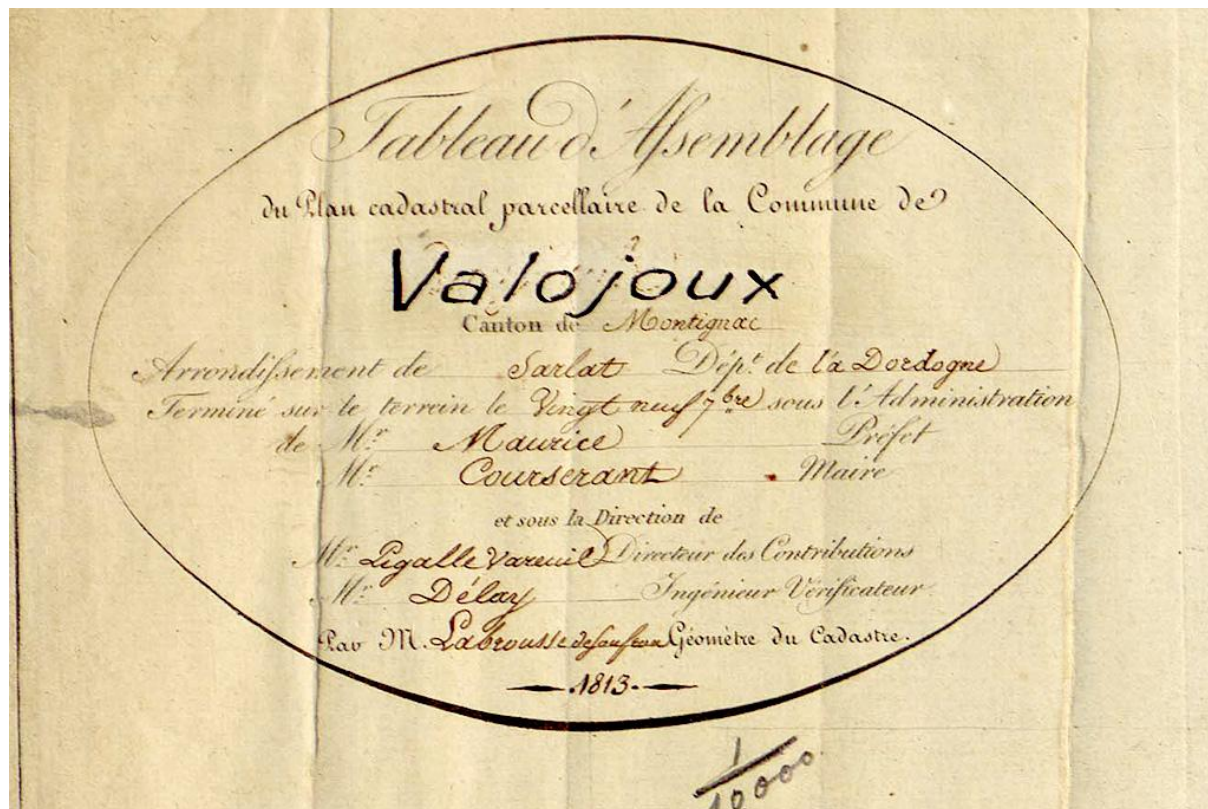 Tableau d'Assemblage
du Plan cadastral parcellaire de la Commune de
Valojoux
Canton de Montignac
Arrondissement de Sarlat Dépt. de la Dordogne
Terminé sur le terrein le Vingt neuf 7bre sous l'Administration
de Mr. Maurice Préfet
Mr. Courserant Maire
et sous la Direction de
Mr. Vareuil Directeur des Contributions
Mr. Délay Ingénieur Vérificateur
Par M. Labrousse Géomètre du Cadastre.
1813.
1/10000